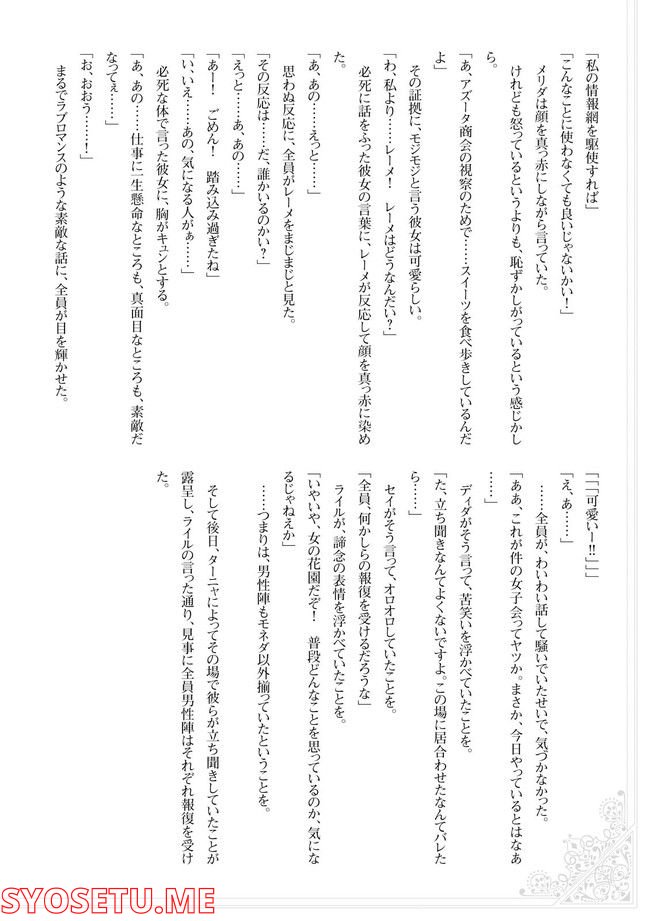 「私の情報網を駆使すれば」
「こんなことに使わなくても良いじゃないかい！」
メリダは顔を真っ赤にしながら言っていた。
けれども怒っているというよりも、恥ずかしがっているという感じかし
ら。
「あ、アズータ商会の視察のためで……スイーツを食べ歩きしているんだ
よ」
その証拠に、モジモジと言う彼女は可愛らしい。
「わ、私より……レーメ！　レーメはどうなんだい？」
必死に話をふった彼女の言葉に、レーメが反応して顔を真っ赤に染め
た。
「あ、あの……えっと……」
思わぬ反応に、全員がレーメをまじまじと見た。
「その反応は……だ、誰かいるのかい？」
「えっと……あ、あの……」
「あー！　ごめん！　踏み込み過ぎたね」
「い、いえ……あの、気になる人がぁ……」
必死な体で言った彼女に、胸がキュンとする。
「あ、あの……仕事に一生懸命なところも、真面目なところも、素敵だ
なってぇ……」
「お、おおう……！」
まるでラブロマンスのような素敵な話に、全員が目を輝かせた。
「「「可愛いー!!」」」
「え、あ……」
……全員が、わいわい話して騒いでいたせいで、気づかなかった。
「ああ、これが件の女子会ってヤツか。まさか、今日やっているとはなあ
……」
ディダがそう言って、苦笑いを浮かべていたことを。
「た、立ち聞きなんてよくないですよ。この場に居合わせたなんてバレた
ら……」
セイがそう言って、オロオロしていたことを。
「全員、何かしらの報復を受けるだろうな」
ライルが、諦念の表情を浮かべていたことを。
「いやいや、女の花園だぞ！　普段どんなことを思っているのか、気にな
るじゃねえか」
……つまりは、男性陣もモネダ以外揃っていたということを。
そして後日、ターニャによってその場で彼らが立ち聞きしていたことが
露呈し、ライルの言った通り、見事に全員男性陣はそれぞれ報復を受け
た。
SYOSETU.ME